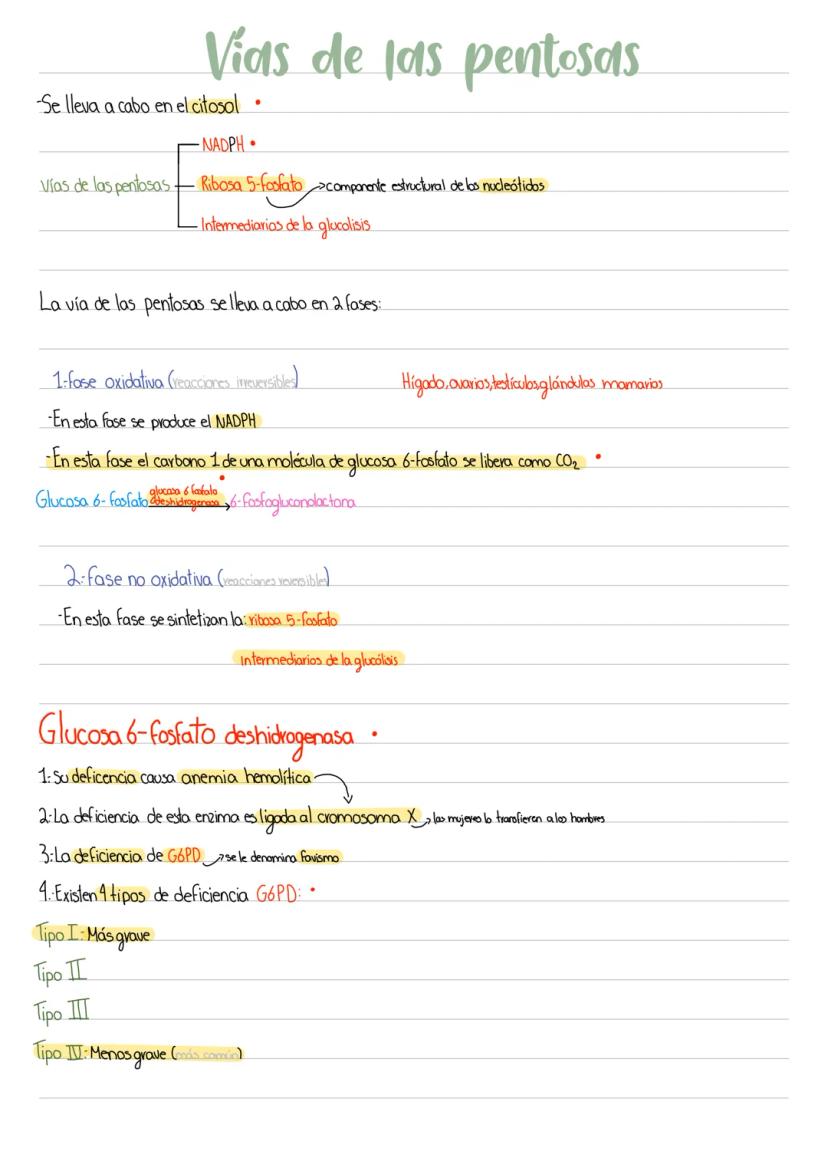 Vías de las pentosas
-Se lleva a cabo en el citosol
NADPH
Vías de las pentosas
Ribosa 5-fosfato
componente estructural de los nucleótidos
Intermediarios de la glucolisis
La vía de las pentosas se lleva a cabo en 2 fases:
1-fase oxidativa (reacciones irreversibles)
Hígado, ovarios, testículos, glándulas mamarias
-En esta fase se produce el NADPH
-En esta fase el carbono 1 de una molécula de glucosa 6-fosfato se libera como CO₂
Glucosa 6-fosfato
glucosa 6 fosfato
deshidrogenasa
6-fosfogluconolactona
2-fase no oxidativa (reacciones reversibles)
-En esta fase se sintetizan la: ribosa 5-fosfato
Intermediarios de la glucólisis
Glucosa 6-fosfato deshidrogenasa
1-Su deficencia causa anemia hemolítica
2-La deficiencia de esta enzima es ligada al cromosoma X
las mujeres lo transfieren a los hombres
3-La deficiencia de G6PD
se le denomina favismo
4-Existen 4 tipos de deficiencia G6PD:
Tipo I-Más grave
Tipo II
Tipo III
Tipo IV-Menos grave (más común)